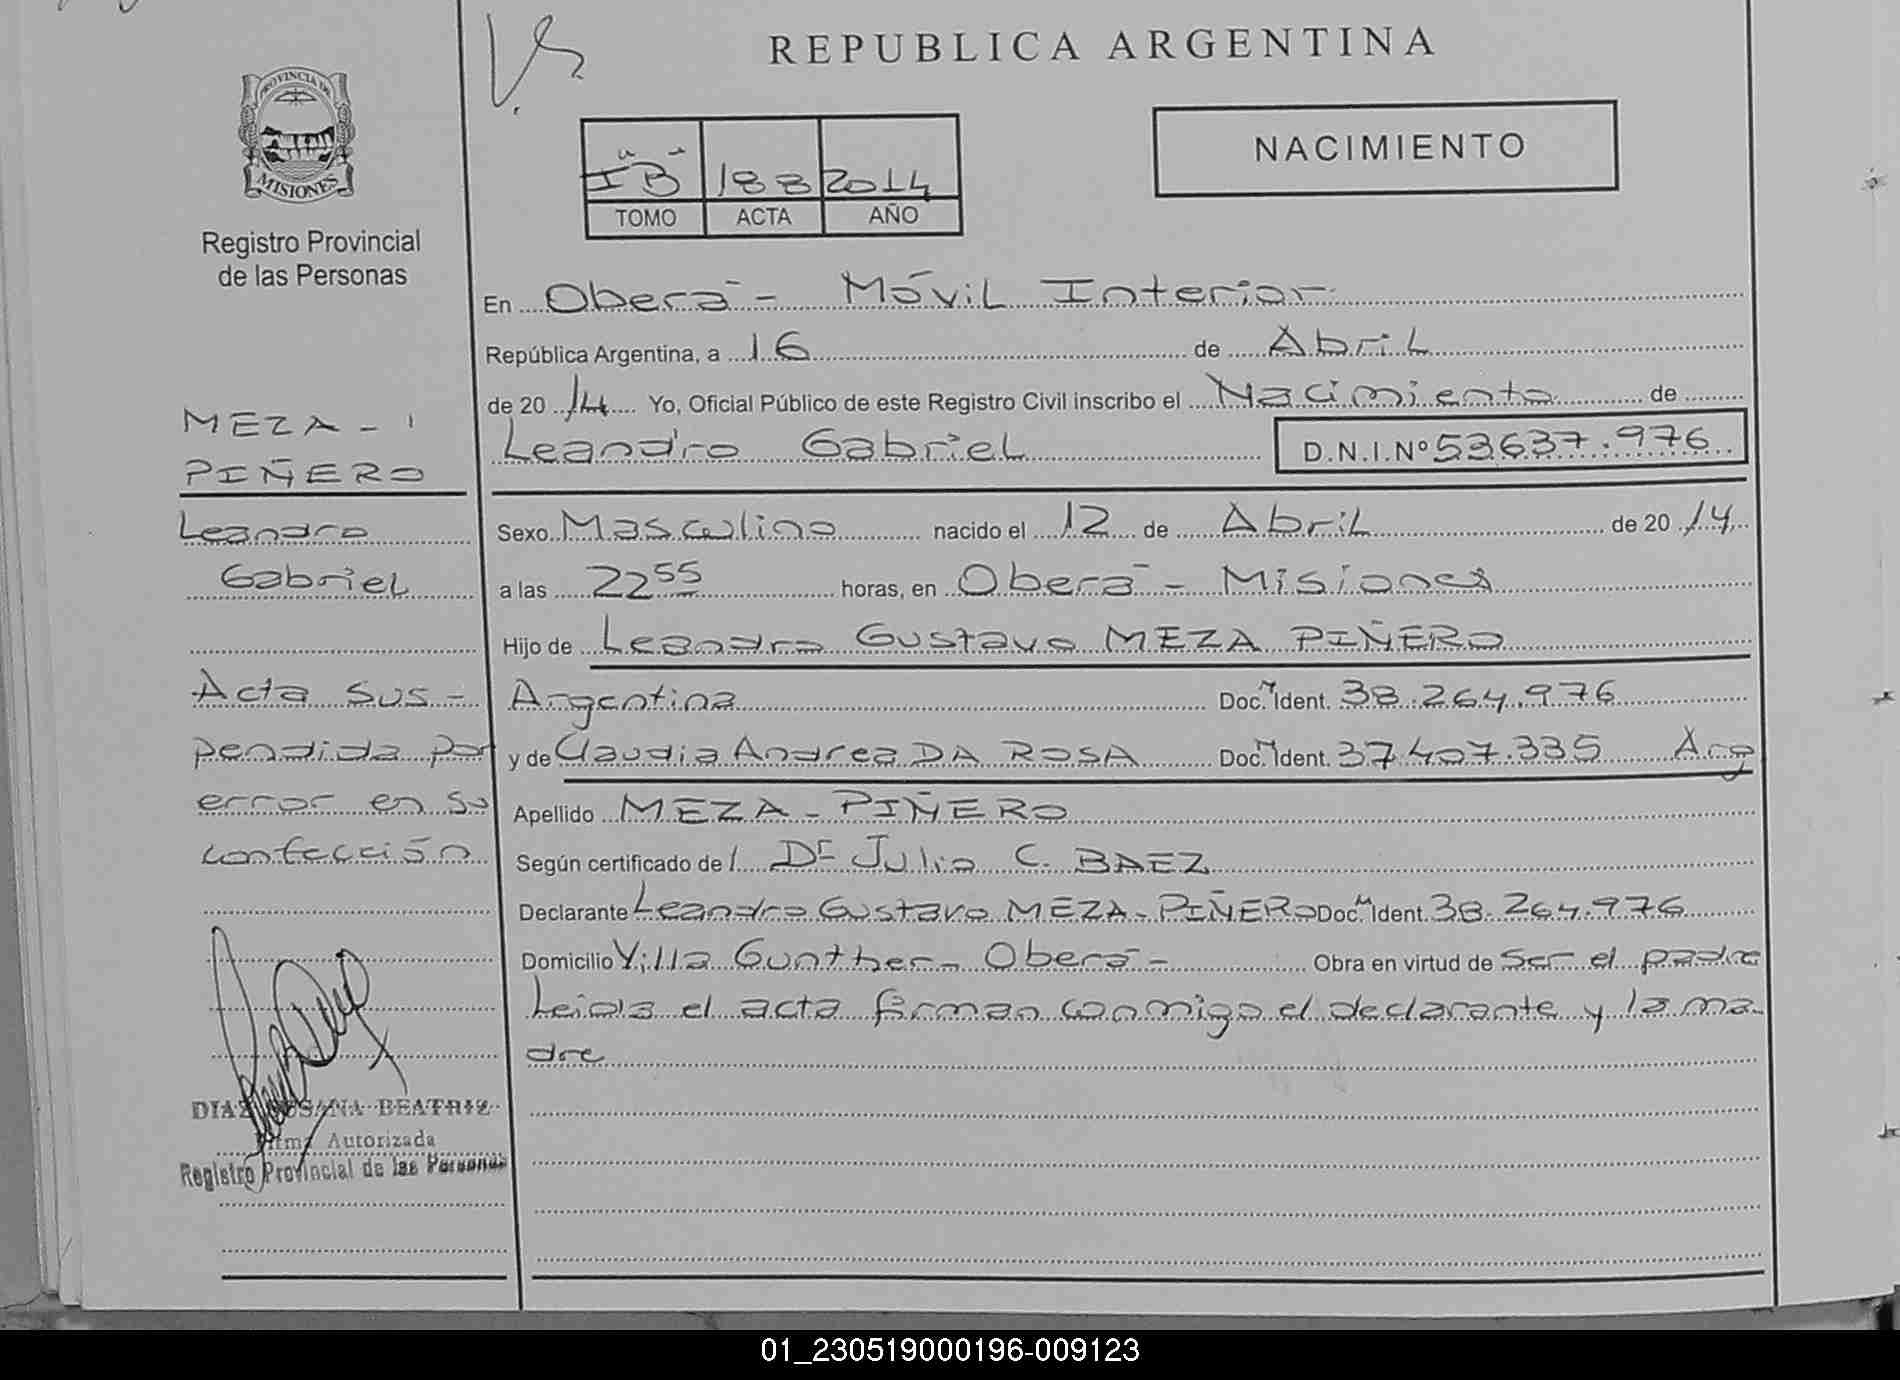 REPUBLICA ARGENTINA
PROVINCIA DE
MISIONES
Registro Provincial
de las Personas
NACIMIENTO
188 2014
TOMO ACTA AÑO
En Oberá - Móvil Interior
República Argentina, a 16 de Abril
de 20 14 Yo, Oficial Público de este Registro Civil inscribo el Nacimiento de
Leandro Gabriel D.N.I.Nº 53637.976
MEZA -
PIÑERO
Leandro
Gabriel
Sexo Masculino nacido el 12 de Abril de 20 14
a las 22 55 horas, en Oberá - Misiones
Hijo de Leandro Gustavo MEZA PIÑERO
Argentina Doc. Ident. 38.264.976
y de Claudia Andrea DA ROSA Doc. Ident. 37.407.335 Arg
Apellido MEZA - PIÑERO
Según certificado de Dr Julio C. BAEZ
Declarante Leandro Gustavo MEZA - PIÑERO Doc. Ident. 38.264.976
Domicilio Villa Gunther - Oberá - Obra en virtud de ser el padre
Leida el acta firman conmigo el declarante y la ma-
dre
Acta sus-
pendida por
error en su
confección
DIAZ SUSANA BEATRIZ
Firma Autorizada
Registro Provincial de las Personas
01_230519000196-009123